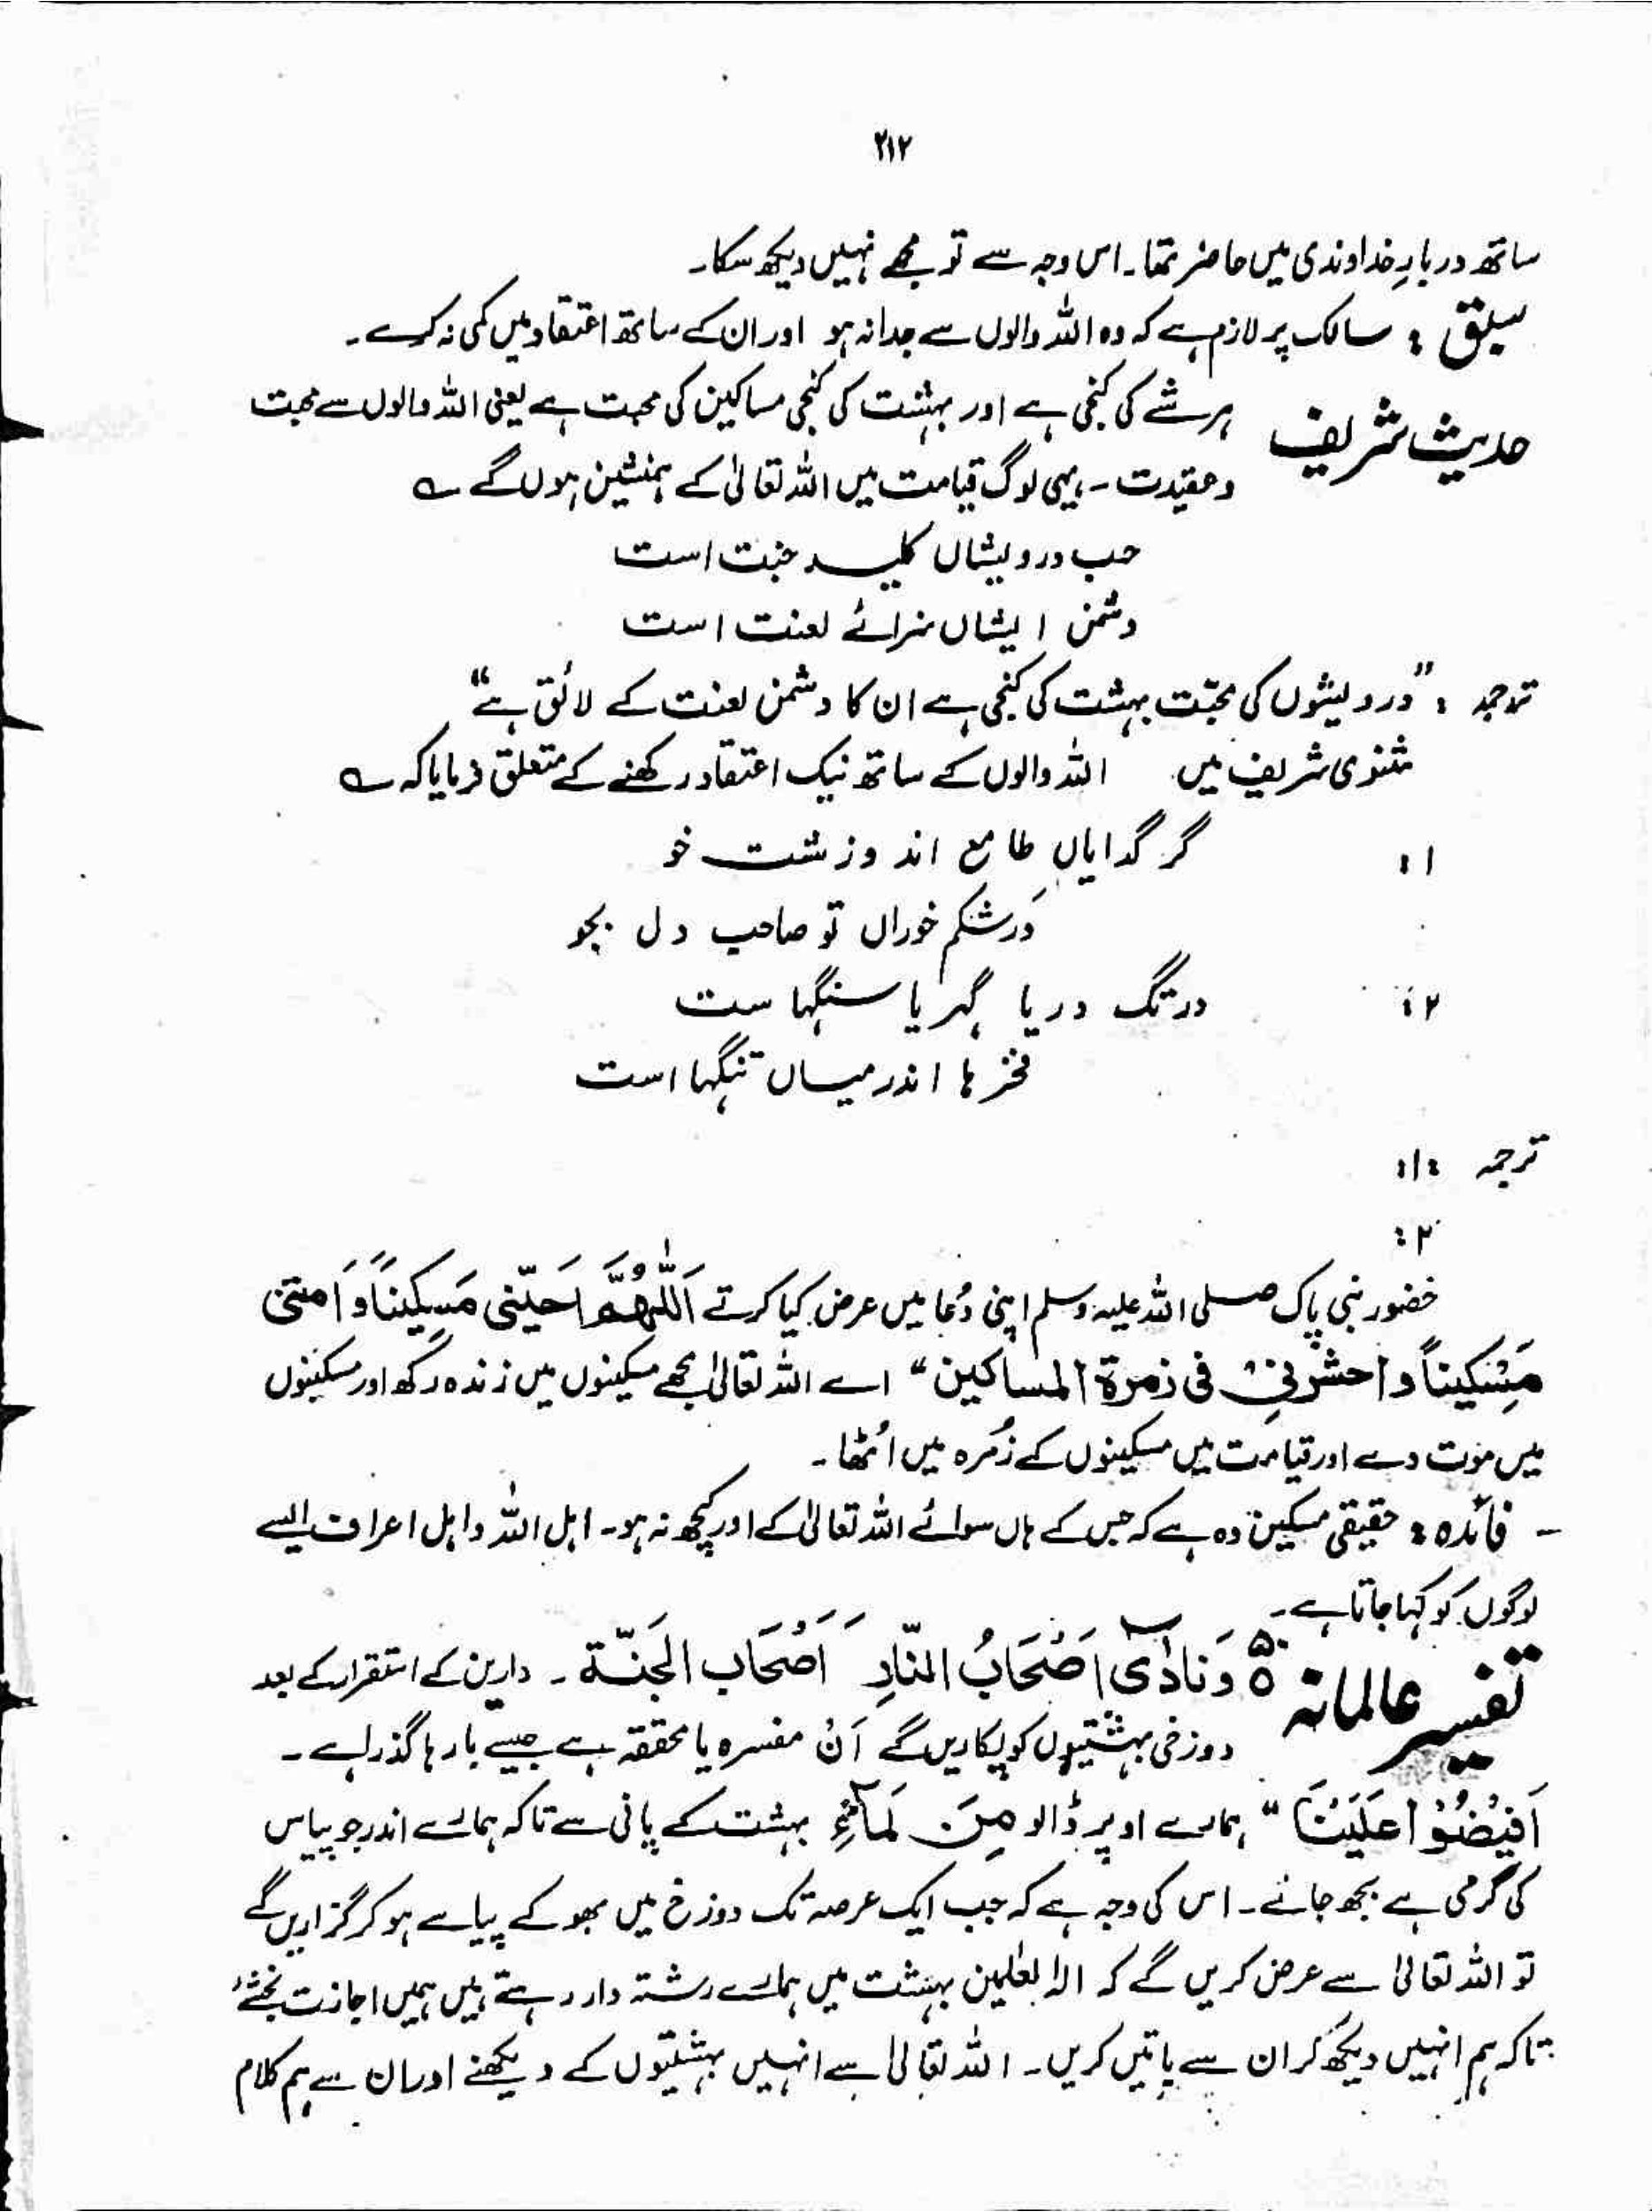 ۲۱۲
ساتھ دربارِ خداوندی میں حاضر تھا۔ اس وجہ سے تو مجھے نہیں دیکھ سکا۔
سبق : سالک پر لازم ہے کہ وہ اللہ والوں سے جدا نہ ہو اور ان کے ساتھ اعتقاد میں کمی نہ کرے۔
حدیث شریف ہر شے کی کنجی ہے اور بہشت کی کنجی مساکین کی محبت ہے یعنی اللہ والوں سے محبت
و عقیدت ۔ یہی لوگ قیامت میں اللہ تعالیٰ کے ہمنشین ہوں گے ؎
حب درویشاں کلید جنت است
دشمن ایشاں سزائے لعنت است
ترجمہ : ”درویشوں کی محبّت بہشت کی کنجی ہے ان کا دشمن لعنت کے لائق ہے“
مثنوی شریف میں اللہ والوں کے ساتھ نیک اعتقاد رکھنے کے متعلق فرمایا کہ ؎
۱: گر گدایاں طامع اند و زشت خو
دَر شکم خوراں تو صاحب دل بجو
۲: در تگ دریا گہر یا سنگہاست
فخرہا اندر میاں تنگہا است
ترجمہ :۱:
۲:
حضور نبی پاک صلی اللہ علیہ وسلم اپنی دُعا میں عرض کیا کرتے اَللّٰھُمَّ اَحیّنی مَسِکیناً وَاَمتنی
مَسْکیناً واحشرنی فی زمرۃ المساکین“ اے اللہ تعالیٰ مجھے مسکینوں میں زندہ رکھ اور مسکینوں
میں موت دے اور قیامت میں مسکینوں کے زُمرہ میں اُٹھا۔
۔ فائدہ : حقیقی مسکین وہ ہے کہ جس کے ہاں سوائے اللہ تعالیٰ کے اور کچھ نہ ہو۔ اہل اللہ و اہل اعراف ایسے
لوگوں کو کہا جاتا ہے۔
تفسیر عالمانہ ۵۰ وَنَادٰۤی اَصْحَابُ النّارِ اَصْحَاب الجَنّۃ ۔ دارین کے استقرار کے بعد
دوزخی بہشتیوں کو پکاریں گے اَنْ مفسرہ یا محققہ ہے جیسے بارہا گذرا ہے۔
اَفِیْضُوْا عَلَیْنَا “ ہمارے اوپر ڈالو مِنَ لَمآءِ بہشت کے پانی سے تاکہ ہمارے اندر جو پیاس
کی گرمی ہے بجھ جائے۔ اس کی وجہ ہے کہ جب ایک عرصہ تک دوزخ میں بھوکے پیاسے ہو کر گزاریں گے
تو اللہ تعالیٰ سے عرض کریں گے کہ الہ العٰلمین بہشت میں ہمارے رشتہ دار رہتے ہیں ہمیں اجازت بخشئے
تاکہ ہم انہیں دیکھ کر ان سے باتیں کریں۔ اللہ تعالیٰ سے انہیں بہشتیوں کے دیکھنے اور ان سے ہم کلام